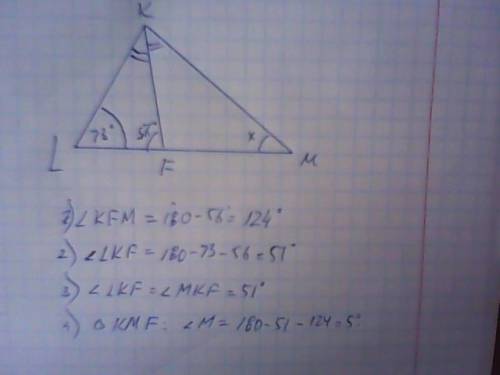 K
73°
x
L
F
M
1) ∠KFM = 180 - 56 = 124°
2) ∠LKF = 180 - 73 - 56 = 51°
3) ∠LKF = ∠MKF = 51°
4) △KMF: ∠M = 180 - 51 - 124 = 5°